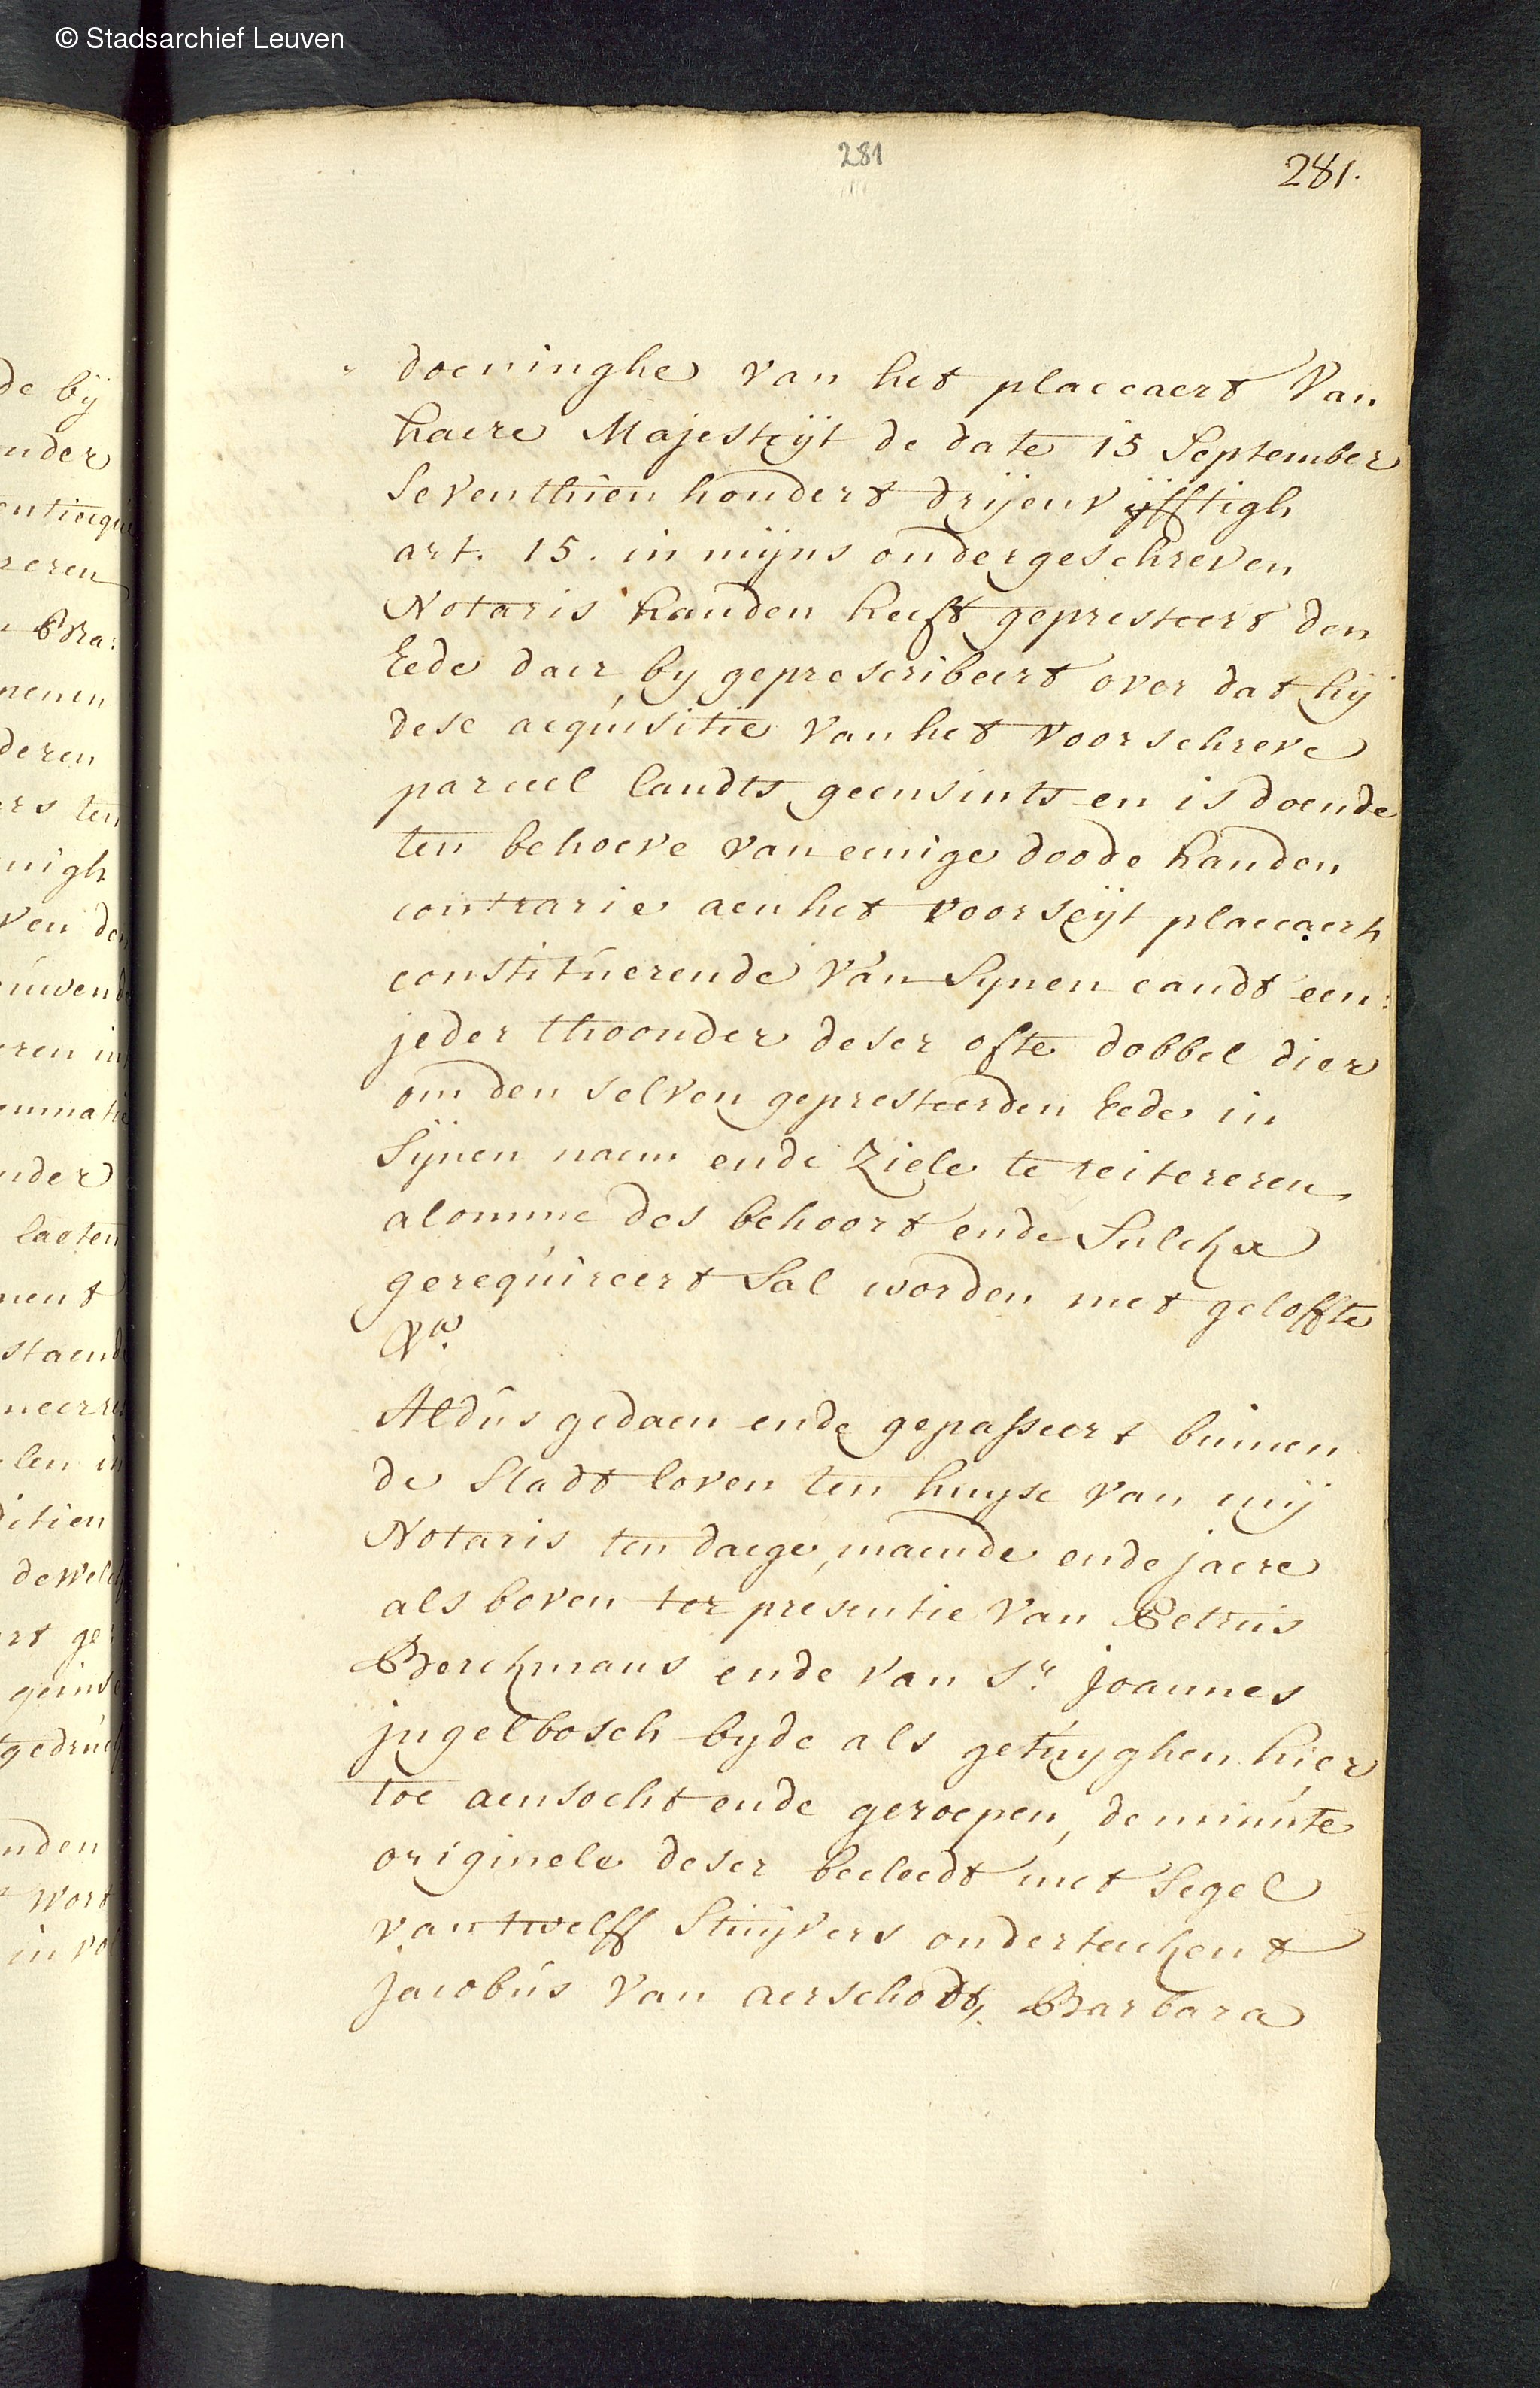 © Stadsarchief Leuven
281
281.
doeninghe van het placcaert van
haere Majesteijt de date 15 September
seventhien hondert drijenvijfftigh
art. 15. in mijns ondergeschreven
Notaris handen heeft gepresteert den
Eede daer by geprescribeert over dat hij
dese acquisitie van het voorschreve
parceel landts geensints en is doende
ten behoeve van eenige doode handen
contrarie aen het voorseijt placcaert
constituerende van synen candt een:
jeder thoonder deser ofte dobbel dier
om den selven gepresteerden Eede in
sijnen naem ende Ziele te reitereren
alomme des behoort ende sulckx
gerequireert sal worden met geloffte
Aldús gedaen ende gepasseert binnen
de stadt loven ten huyse van mij
Notaris ten daege, maende ende jaere
als boven ter presentie van Petrus
Berckmans ende van Sr. joannes
jngelbosch byde als getuyghen hier
toe aensocht ende geroepen, de minute
originele deser becleedt met segel
van twelff stuyvers onderteeckent
jacobús van aerschodt, Barbara
de bij
onder
eren
Bra:
nemen
deren
ers ten
nigh
ven den
eren in
nder
laeten
ment
len in
ditien
ert ge:
nden
wort